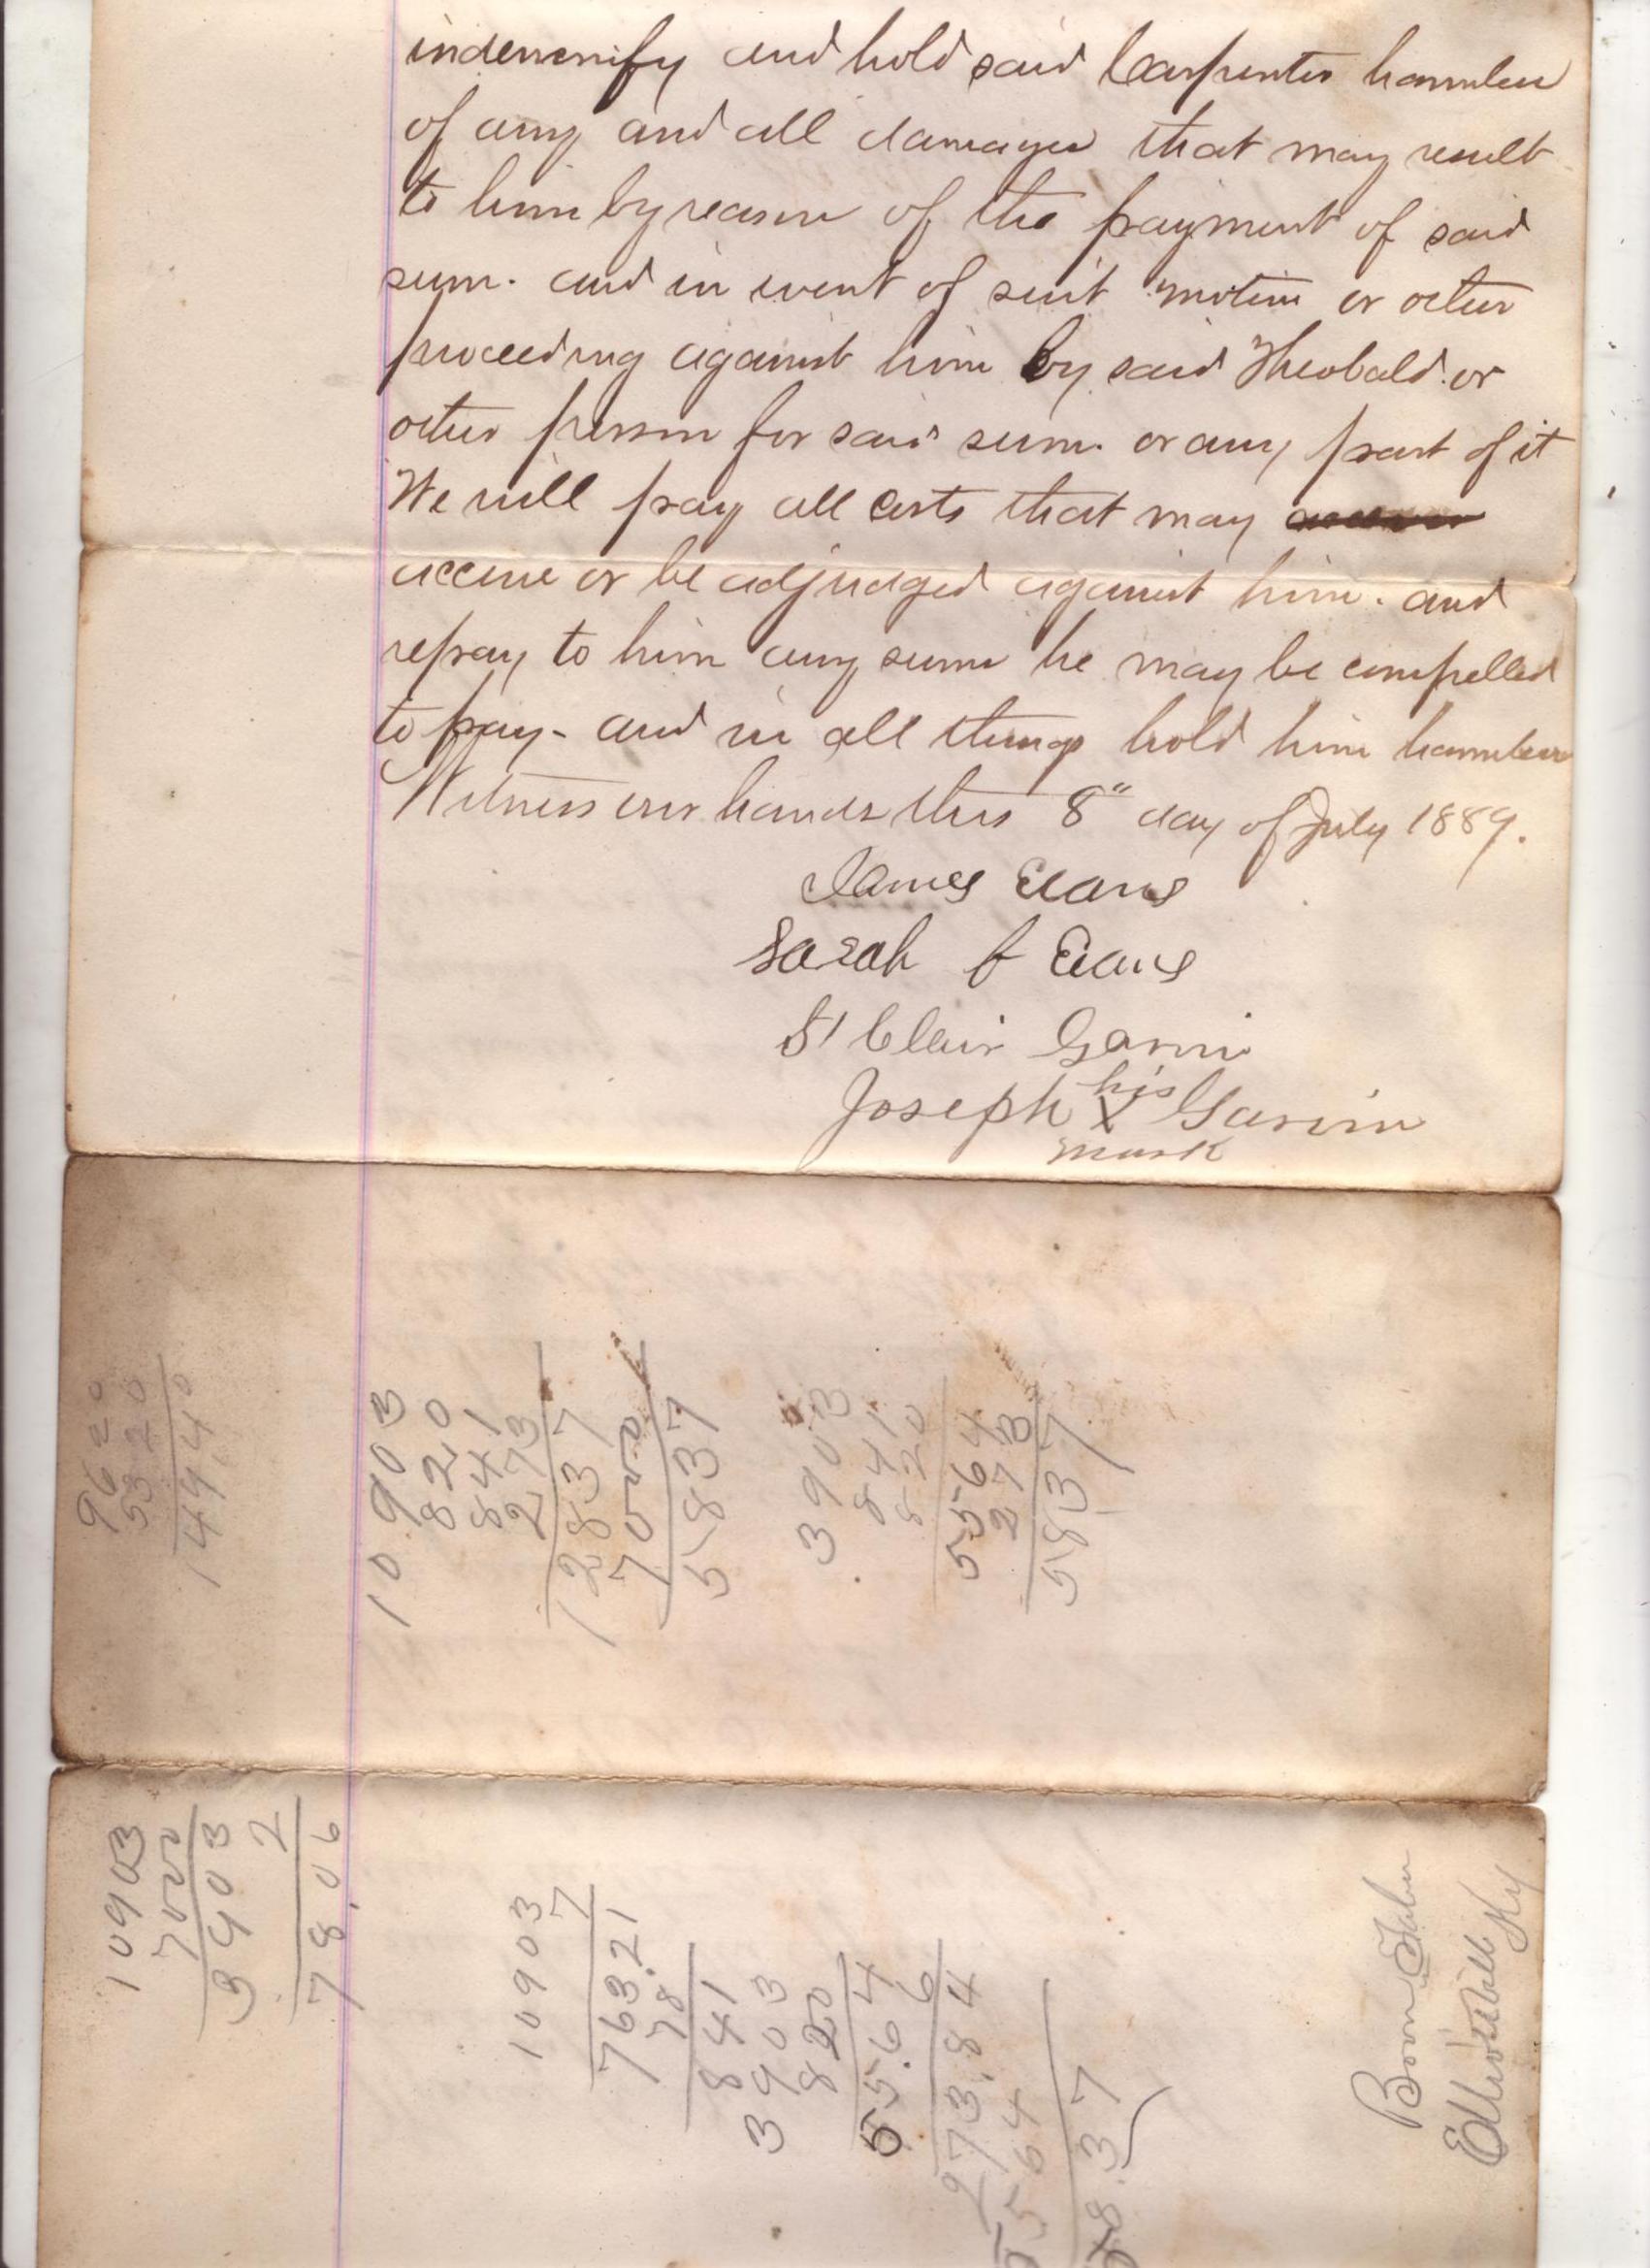 indemnify and hold said Carpenter harmless
of any and all damages that may result
to him by reason of the payment of said
sum. and in event of suit motion or other
proceeding against him by said Theobald. or
other person for said sum. or any part of it
We will pay all costs that may
accrue or be adjudged against him. and
repay to him any sum he may be compelled
to pay - and in all things hold him harmless
Witness our hands this 8" day of July 1889.
James Evans
Sarah F Evans
St Clair Garvin
his
Joseph X Garvin
mark
9620
5320
14940
10903
820
841
273
12837
7000
5837
3903
841
820
5564
273
5837
10903
7000
3903
2
78.06
10903
7
763.21
78
841
3903
820
55.64
6
273.84
5564
58.37
Boon
Elliottville Ky